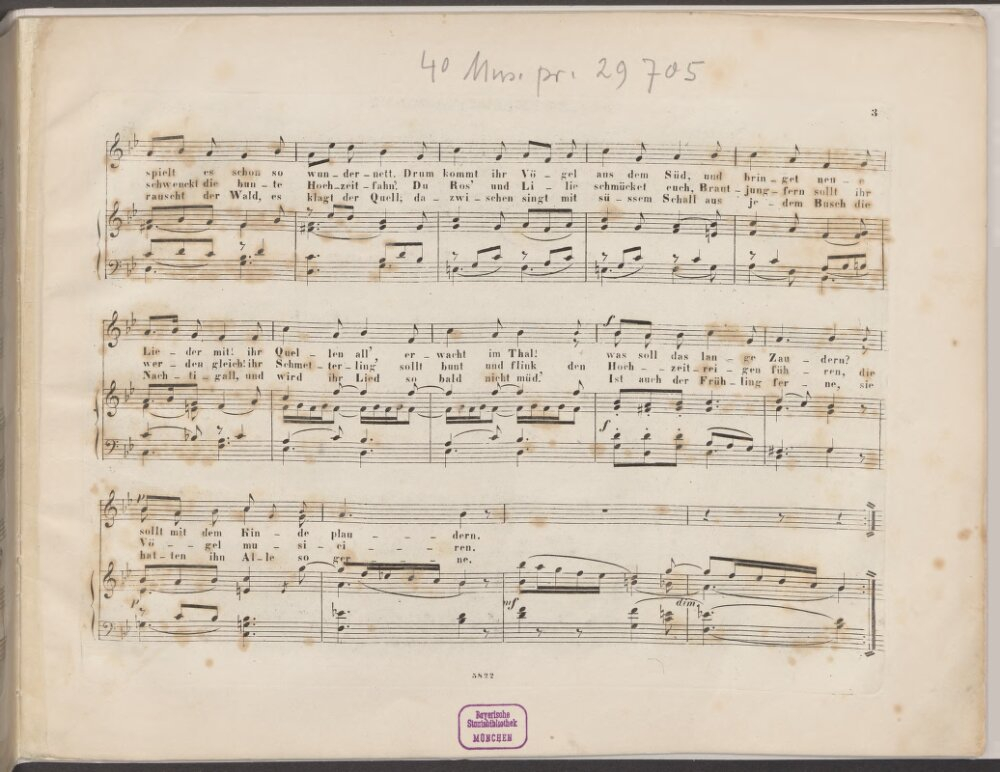 4° Mus. pr. 29 705
3
spielt es schon so wun_der_nett. Drum kommt ihr Vö_gel aus dem Süd, und brin_get neu_e
schwenckt die bun_te Hoch_zeit_fahn'. Du Ros' und Li_lie schmücket euch, Braut_jung_fern sollt ihr
rauscht der Wald, es klagt der Quell; da_zwi_schen singt mit sü_ssem Schall aus je_dem Busch die
f
Lie_der mit! ihr Quel_len all', er_wacht im Thal! was soll das lan_ge Zau_dern?
wer_den gleich! ihr Schmet_ter_ling sollt bunt und flink den Hoch_zeit_rei_gen füh_ren, die
Nach_ti_gall, und wird ihr Lied so bald nicht müd'. Ist auch der Früh_ling fer_ne, sie
f
p
sollt mit dem Kin_de plau_dern.
Vö_gel mu_si_ci_ren.
hat_ten ihn Al_le so ger_ne.
p mf dim.
5822
Bayerische
Staatsbibliothek
MÜNCHEN